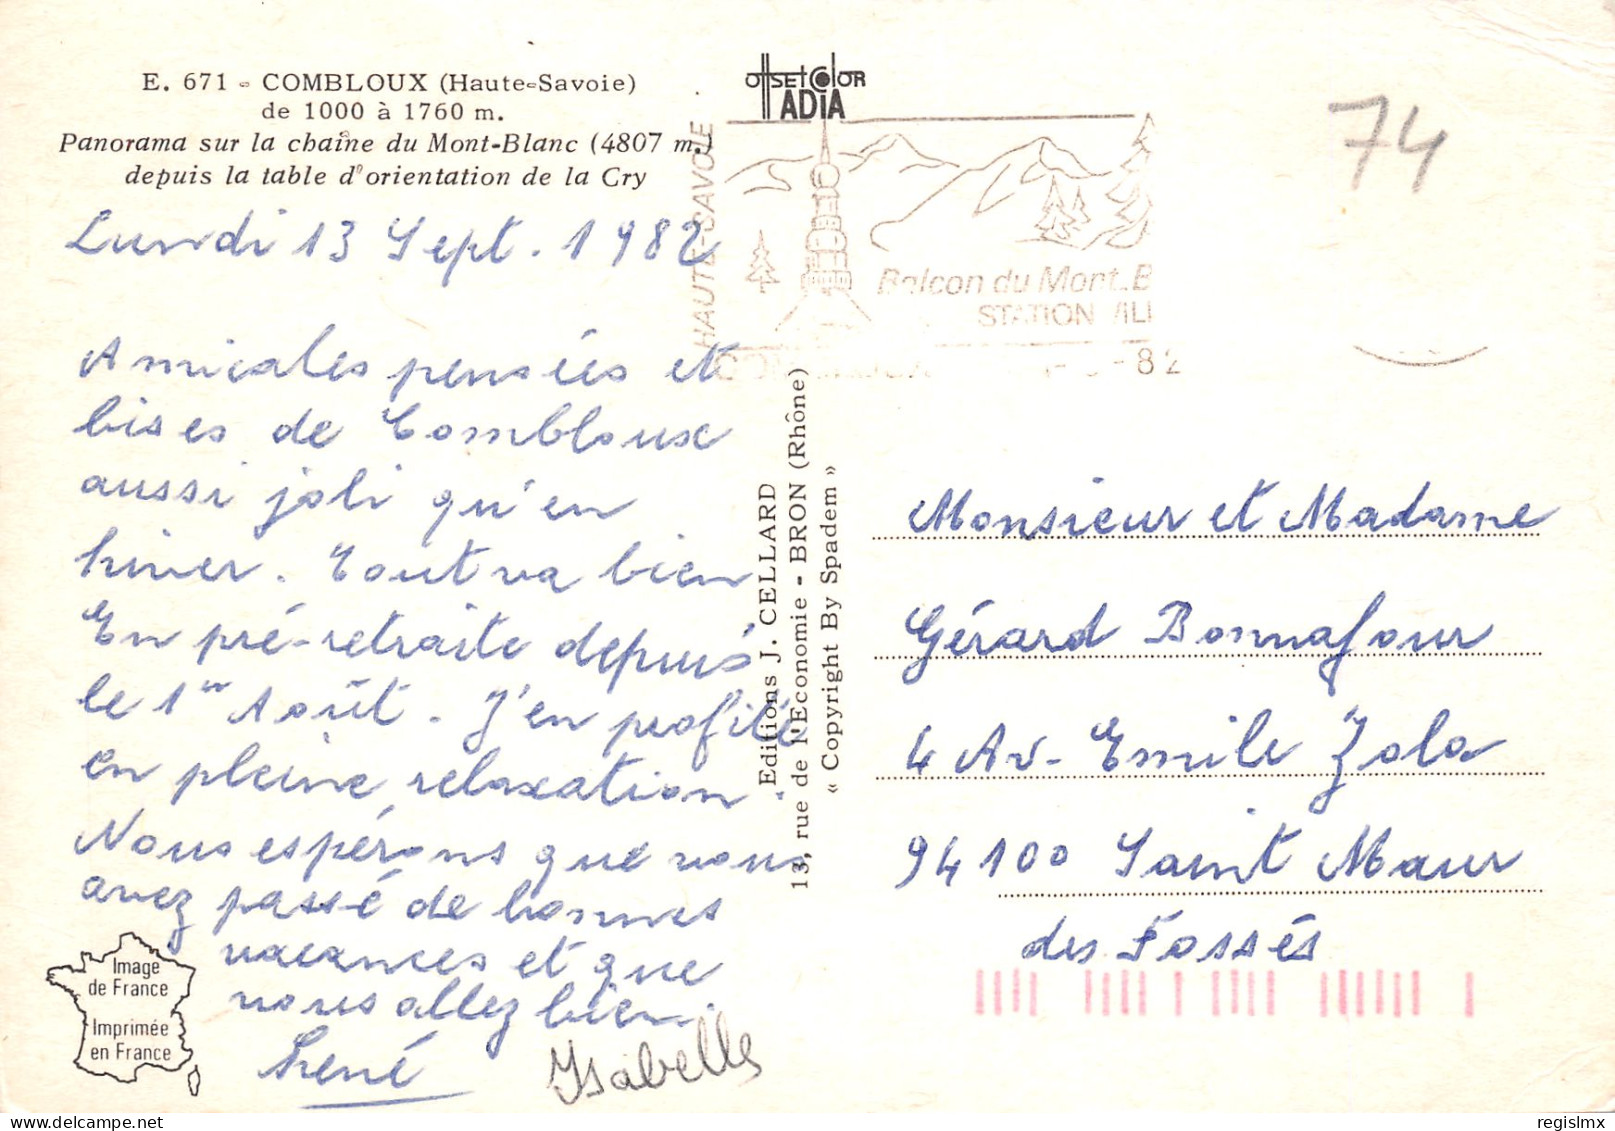 E. 671 - COMBLOUX (Haute-Savoie)
de 1000 à 1760 m.
Panorama sur la chaîne du Mont-Blanc (4807 m.)
depuis la table d'orientation de la Cry
Lundi 13 Sept. 1982
Amicales pensées et
bises de Combloux
aussi joli qu'en
hiver. Tout va bien
En pré-retraite depuis
le 1er Août. J'en profite
en pleine relaxation.
Nous espérons que vous
avez passé de bonnes
vacances et que
vous allez bien.
René
Isabelle
Image
de France
Imprimée
en France
Editions J. CELLARD
13, rue de l'Economie - BRON (Rhône)
« Copyright By Spadem »
OffSEt ColOR
ADiA
HAUTE-SAVOIE
Balcon du Mont-B
STATION VILL
-82
74
Monsieur et Madame
Gérard Bonnafour
4 Av. Emile Zola
94100 Saint Maur
des Fossés
regislmx